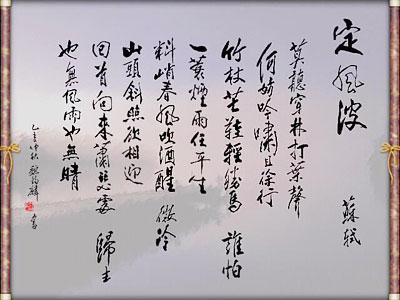 定風波
蘇軾
莫聽穿林打葉聲
何妨吟嘯且徐行
竹杖芒鞋輕勝馬 誰怕
一蓑煙雨任平生
料峭春風吹酒醒 微冷
山頭斜照卻相迎
回首向來蕭瑟處 歸去
也無風雨也無晴